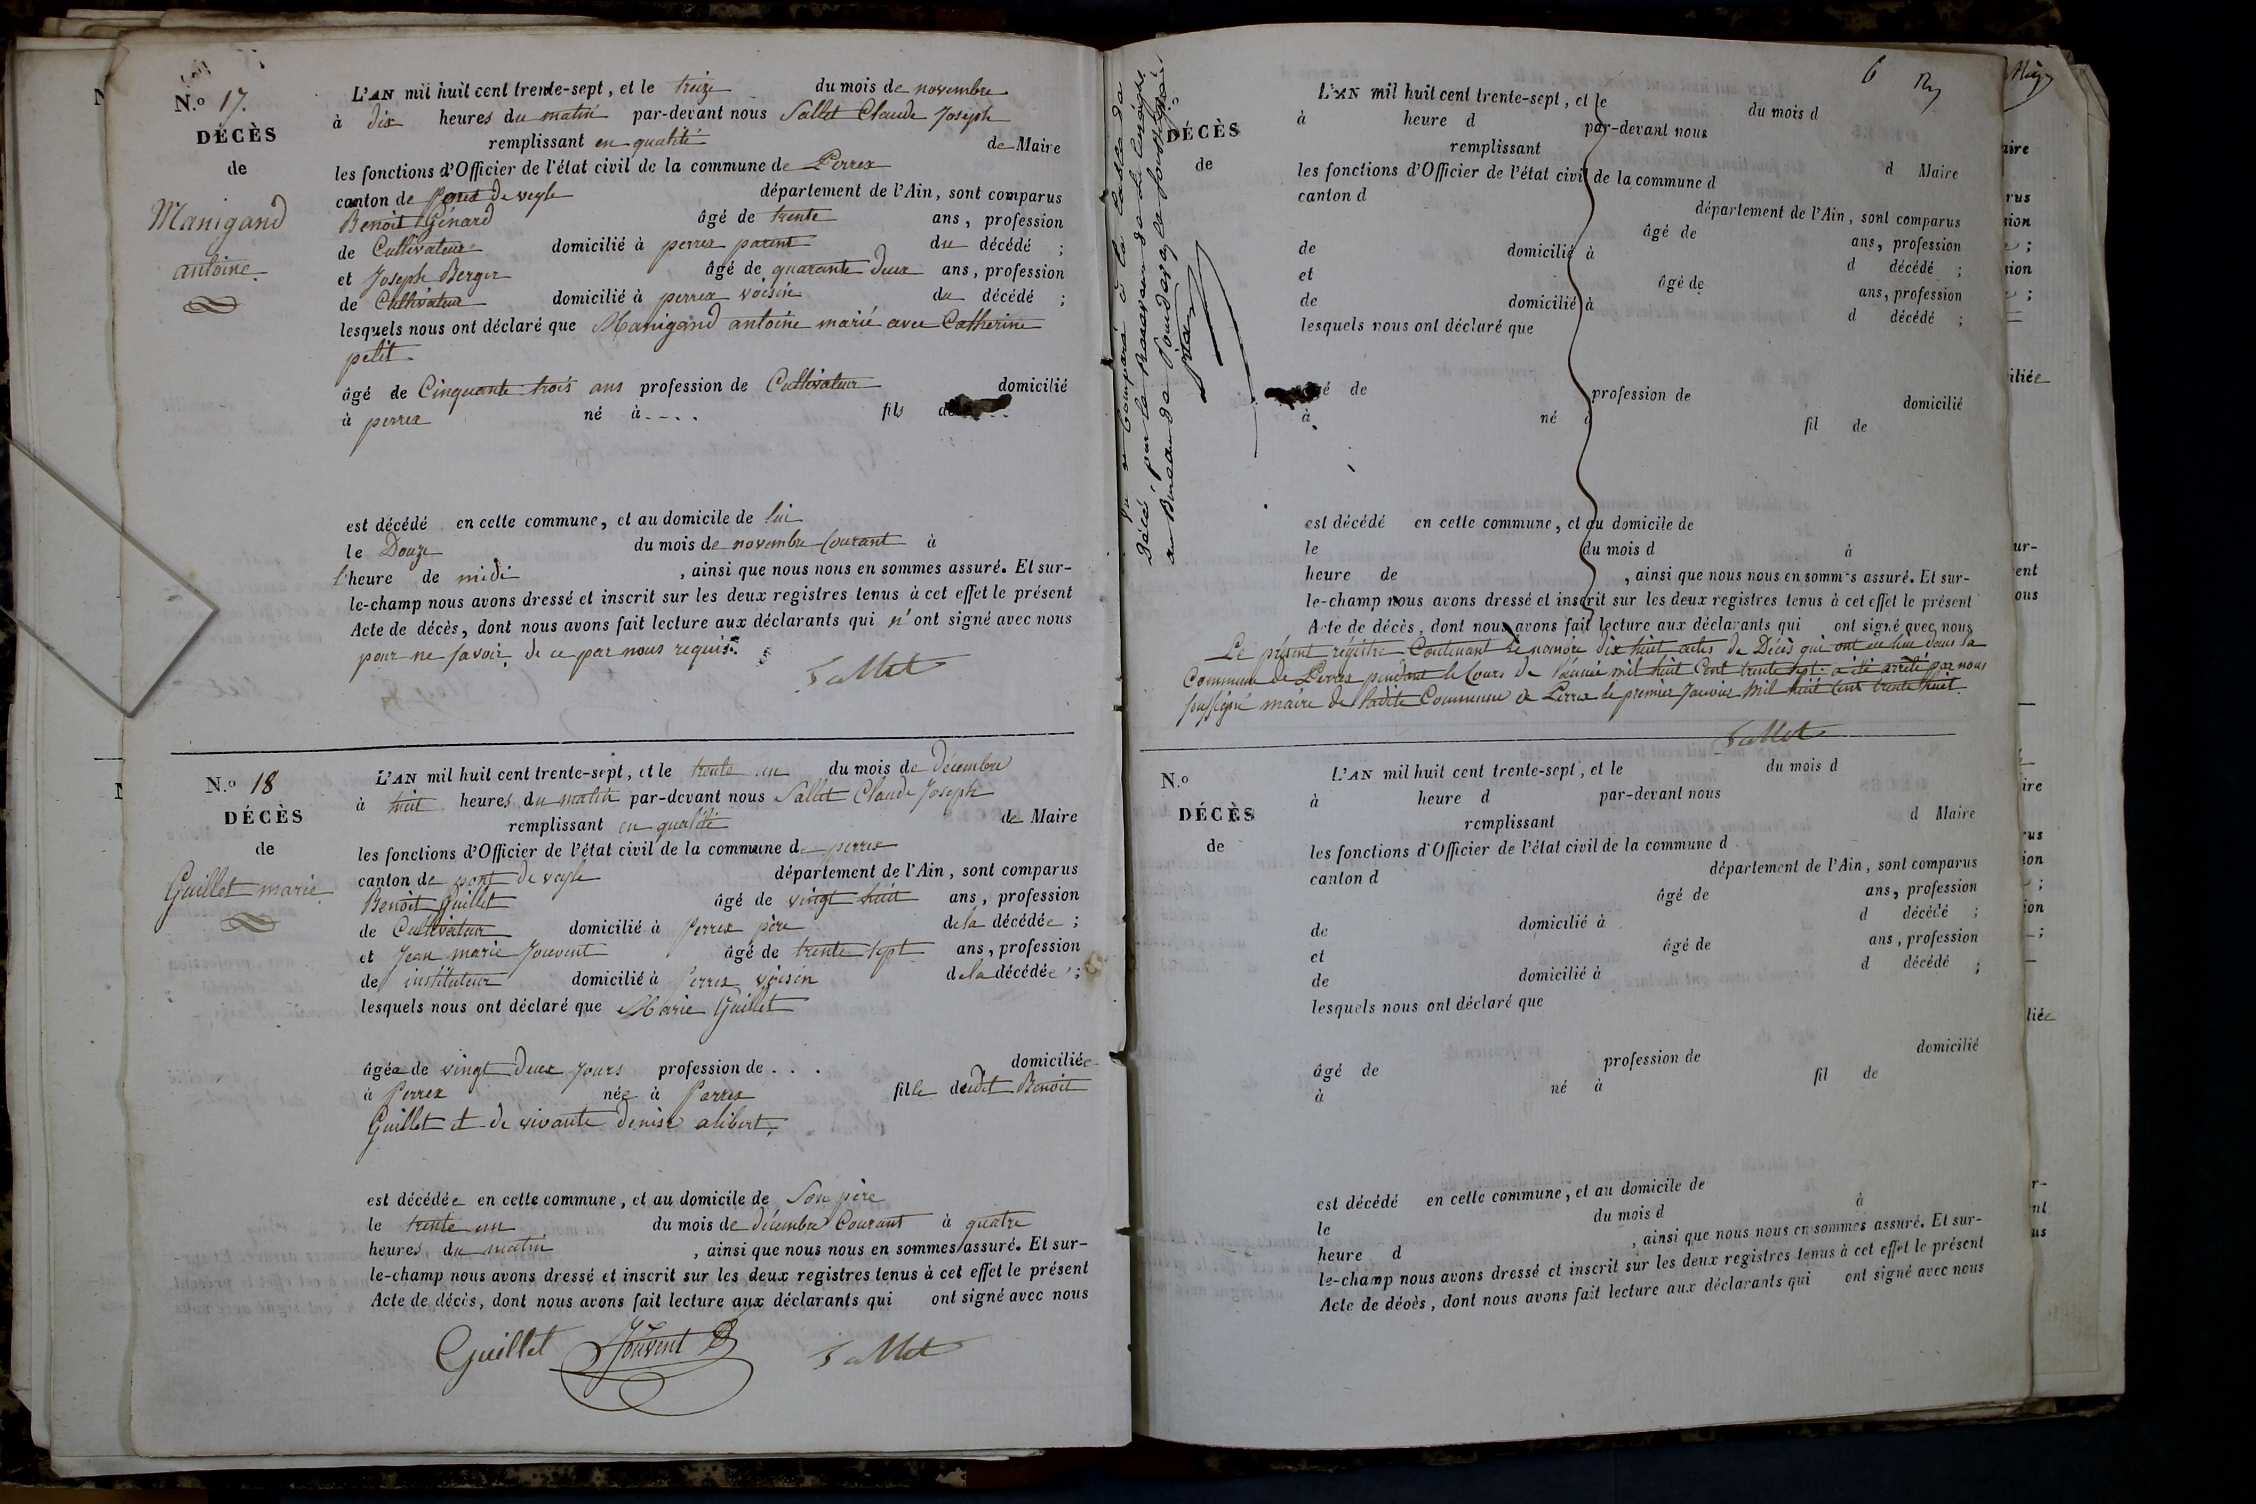 N.o 17.
DÉCÈS
de
Manigand
antoine
L'AN mil huit cent trente-sept, et le treize du mois de novembre
à dix heures du matin par-devant nous Sallet Claude Joseph
remplissant en qualité de Maire
les fonctions d'Officier de l'état civil de la commune de Perrex
canton de pont de veyle département de l'Ain, sont comparus
Benoit Génard âgé de trente ans, profession
de Cultivateur domicilié à perrex parent du décédé ;
et Joseph Berger âgé de quarante deux ans, profession
de Cultivateur domicilié à perrex voisin du décédé ;
lesquels nous ont déclaré que Manigand antoine marié avec Catherine
petit
âgé de Cinquante trois ans profession de Cultivateur domicilié
à perrex né à . . . . fils de
est décédé en cette commune, et au domicile de lui
le Douze du mois de novembre Courant à
l'heure de midi , ainsi que nous nous en sommes assuré. Et sur-
le-champ nous avons dressé et inscrit sur les deux registres tenus à cet effet le présent
Acte de décès, dont nous avons fait lecture aux déclarants qui n'ont signé avec nous
pour ne savoir de ce par nous requis.
Sallet
N.o 18
DÉCÈS
de
Guillet marie
L'AN mil huit cent trente-sept, et le trente un du mois de décembre
à huit heures du matin par-devant nous Sallet Claude Joseph
remplissant en qualité de Maire
les fonctions d'Officier de l'état civil de la commune de perrex
canton de pont de veyle département de l'Ain, sont comparus
Benoit Guillet âgé de vingt huit ans, profession
de Cultivateur domicilié à perrex père de la décédée ;
et Jean marie Jouvent âgé de trente sept ans, profession
de instituteur domicilié à Perrex voisin de la décédée ;
lesquels nous ont déclaré que Marie Guillet
âgée de vingt deux jours profession de . . . domiciliée
à Perrex née à Perrex fille dudit Benoit
Guillet et de vivante denise alibert.
est décédée en cette commune, et au domicile de Son père
le trente un du mois de décembre Courant à quatre
heures du matin , ainsi que nous nous en sommes assuré. Et sur-
le-champ nous avons dressé et inscrit sur les deux registres tenus à cet effet le présent
Acte de décès, dont nous avons fait lecture aux déclarants qui ont signé avec nous
Guillet Jouvent Sallet
Vu et Comparé à la table
par le
au Bureau de
6
DÉCÈS
de
L'AN mil huit cent trente-sept, et le du mois d
à heure d par-devant nous
remplissant d Maire
les fonctions d'Officier de l'état civil de la commune d
canton d département de l'Ain, sont comparus
âgé de ans, profession
de domicilié à d décédé ;
et âgé de ans, profession
de domicilié à d décédé ;
lesquels nous ont déclaré que
âgé de profession de domicilié
à né à fil de
est décédé en cette commune, et au domicile de
le du mois d à
heure de , ainsi que nous nous en sommes assuré. Et sur-
le-champ nous avons dressé et inscrit sur les deux registres tenus à cet effet le présent
Acte de décès, dont nous avons fait lecture aux déclarants qui ont signé avec nous
Le présent régistre Contenant le nombre dix huit actes de Décès qui ont eu lieu dans la
Commune de Perrex pendant le Cours de l'année mil huit Cent trente sept. a été arrêté par nous
soussigné maire de ladite Commune de Perrex le premier Janvier Mil huit Cent trente huit.
Sallet
N.o
DÉCÈS
de
L'AN mil huit cent trente-sept, et le du mois d
à heure d par-devant nous
remplissant d Maire
les fonctions d'Officier de l'état civil de la commune d
canton d département de l'Ain, sont comparus
âgé de ans, profession
de domicilié à d décédé ;
et âgé de ans, profession
de domicilié à d décédé ;
lesquels nous ont déclaré que
âgé de profession de domicilié
à né à fil de
est décédé en cette commune, et au domicile de
le du mois d à
heure d , ainsi que nous nous en sommes assuré. Et sur-
le-champ nous avons dressé et inscrit sur les deux registres tenus à cet effet le présent
Acte de décès, dont nous avons fait lecture aux déclarants qui ont signé avec nous